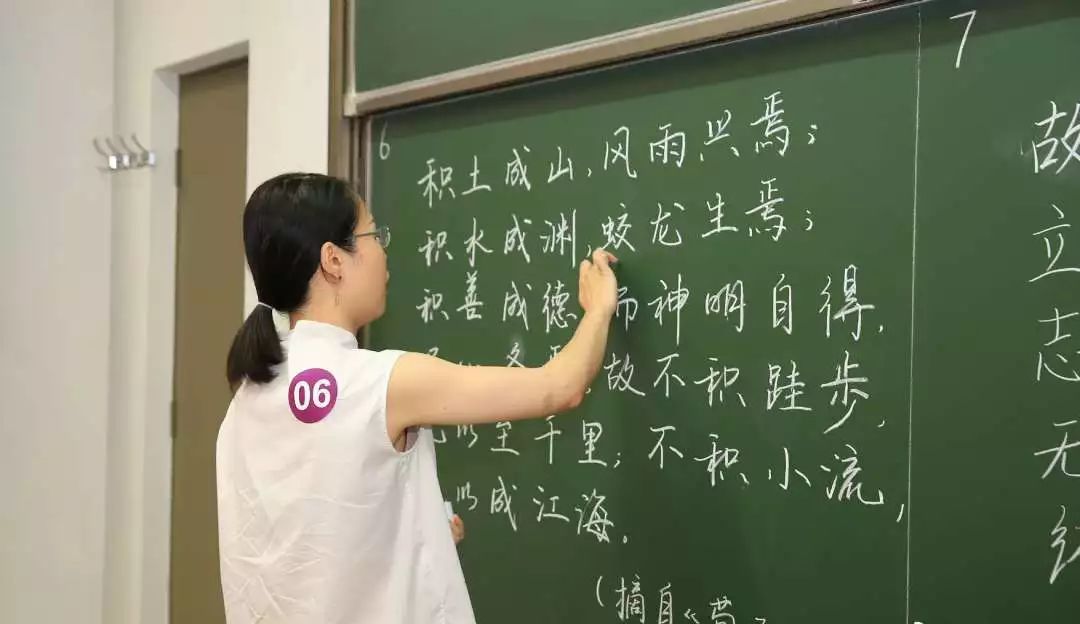 6
积土成山,风雨兴焉;
积水成渊,蛟龙生焉;
积善成德 神明自得,
故不积跬步,
以至千里;不积小流,
以成江海.
(摘自《
7
故
立
志
无
06